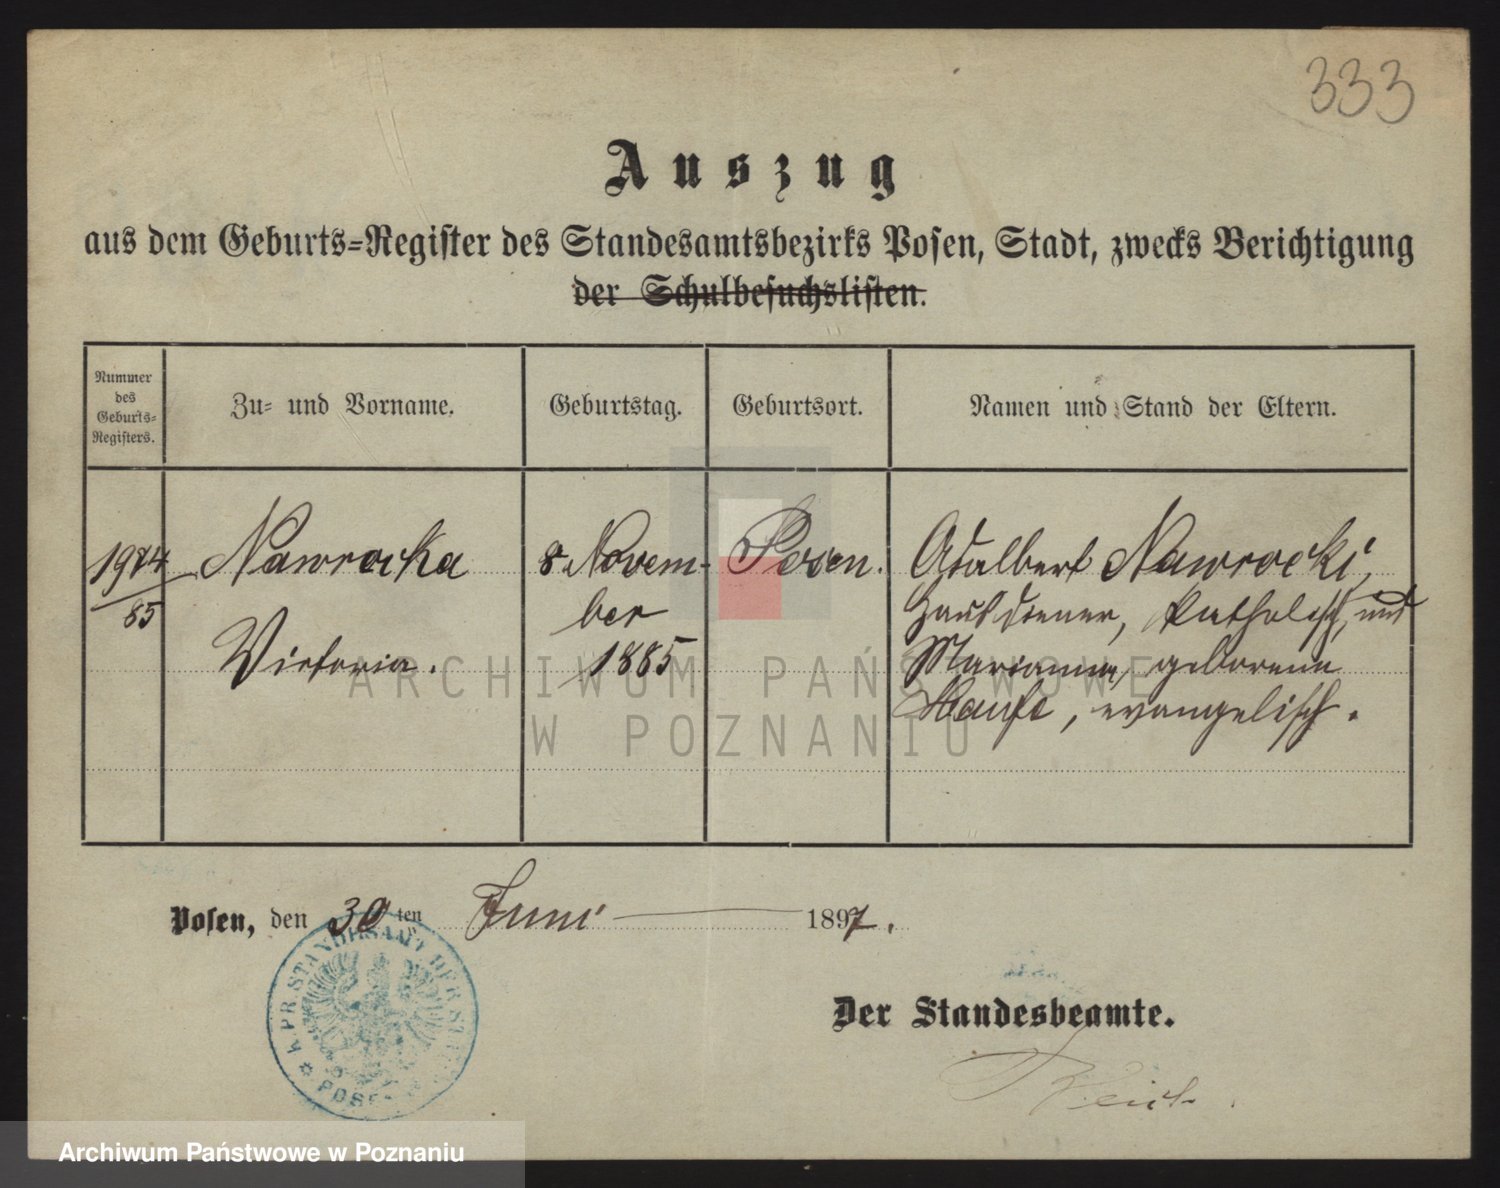 333
Auszug
aus dem Geburts=Register des Standesamtsbezirks Posen, Stadt, zwecks Berichtigung
der Schulbesuchslisten.
Nummer
des
Geburts=
Registers.
Zu= und Vorname.
Geburtstag.
Geburtsort.
Namen und Stand der Eltern.
85
Nawrocka
Victoria.
8. Novem-
ber
1885
Posen.
Adalbert Nawrocki,
Hausdiener, katholisch, und
Marianna, geborene
evangelisch.
ARCHIWUM PAŃSTWOWE
W POZNANIU
Posen, den 30 ten Juni 1897.
K. PR. STANDESAMT DER STADT
POSEN
Der Standesbeamte.
Archiwum Państwowe w Poznaniu